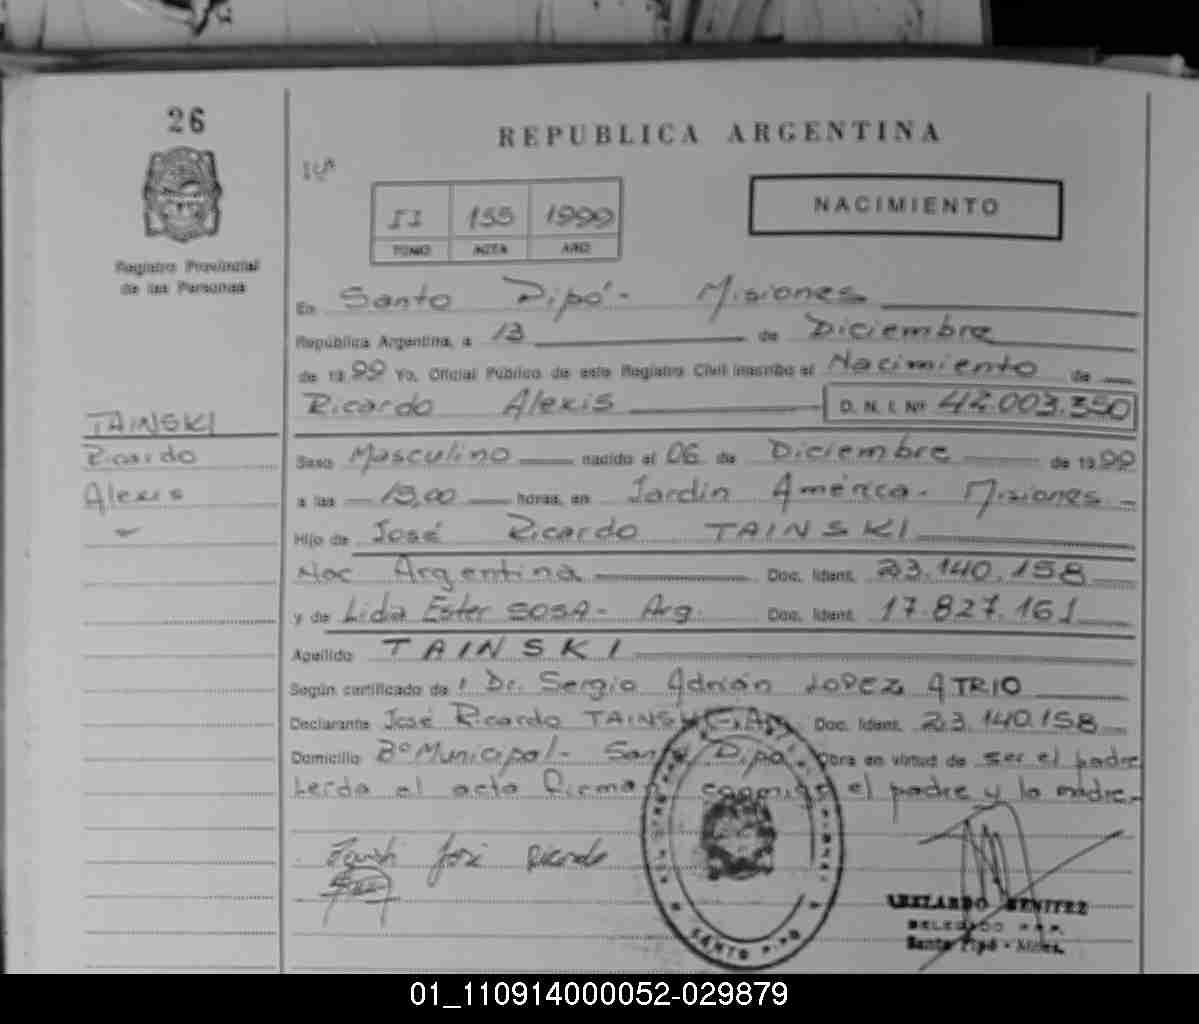 26
REPUBLICA ARGENTINA
II 155 1999
TOMO ACTA AÑO
NACIMIENTO
Registro Provincial
de las Personas
En Santo Pipó - Misiones
República Argentina, a 13 de Diciembre
de 1999 Yo, Oficial Público de este Registro Civil inscribo el Nacimiento de
Ricardo Alexis D. N. I. Nº 42.003.350
TAINSKI
Ricardo
Alexis
Sexo Masculino nacido el 06 de Diciembre de 1999
a las 13,00 horas, en Jardin América - Misiones
Hijo de José Ricardo TAINSKI
Nac Argentina Doc. Ident. 23.140.158
y de Lidia Ester SOSA - Arg. Doc. Ident. 17.827.161
Apellido TAINSKI
Según certificado de: Dr. Sergio Adrián LOPEZ ATRIO
Declarante José Ricardo TAINSKI - Arg Doc. Ident. 23.140.158
Domicilio Bº Municipal - Santo Pipó Obra en virtud de ser el padre
Leída el acta firman conmigo el padre y la madre.-
José Ricardo
SANTO PIPO
ABELARDO BENITEZ
DELEGADO R.P.P.
Santo Pipó - Mnes.
01_110914000052-029879